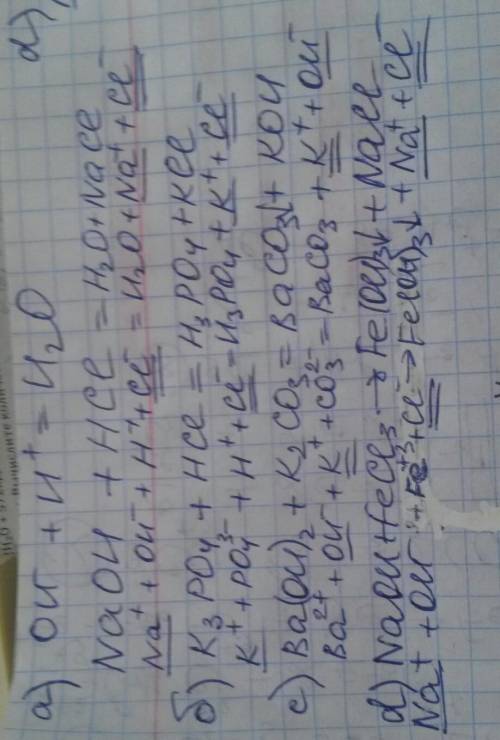 а) OH⁻ + H⁺ = H₂O
NaOH + HCl = H₂O + NaCl
Na⁺ + OH⁻ + H⁺ + Cl⁻ = H₂O + Na⁺ + Cl⁻
б) K₃PO₄ + HCl = H₃PO₄ + KCl
K⁺ + PO₄³⁻ + H⁺ + Cl⁻ = H₃PO₄ + K⁺ + Cl⁻
с) Ba(OH)₂ + K₂CO₃ = BaCO₃↓ + KOH
Ba²⁺ + OH⁻ + K⁺ + CO₃²⁻ = BaCO₃ + K⁺ + OH⁻
d) NaOH + FeCl₃ → Fe(OH)₃↓ + NaCl
Na⁺ + OH⁻ + Fe⁺³ + Cl⁻ → Fe(OH)₃↓ + Na⁺ + Cl⁻